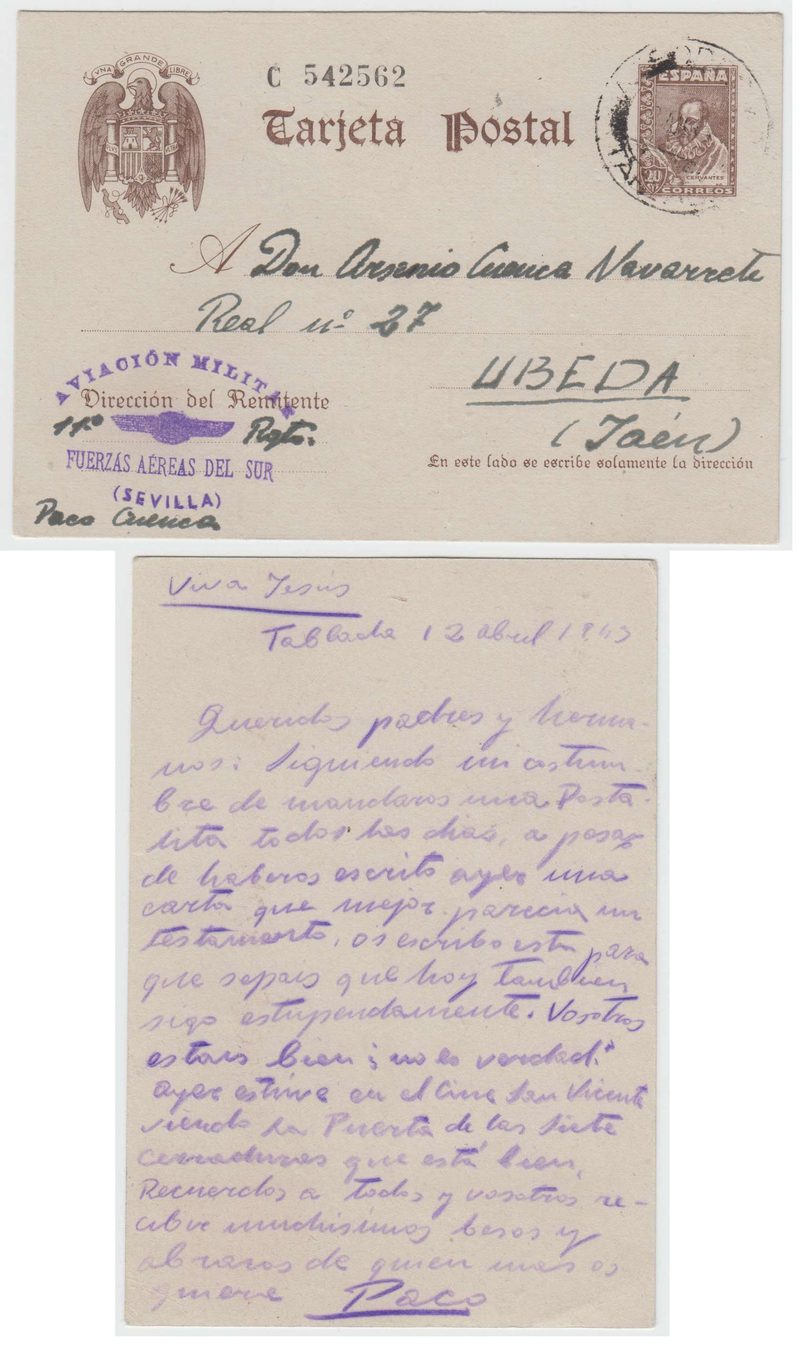 UNA GRANDE LIBRE
C 542562
Tarjeta Postal
ESPAÑA
CERVANTES
20
CORREOS
A Don Arsenio Cuenca Navarrete
Real nº 27
UBEDA
(Jaén)
AVIACIÓN MILITAR
Dirección del Remitente
11º Rgto.
FUERZAS AÉREAS DEL SUR
(SEVILLA)
Paco Cuenca
En este lado se escribe solamente la dirección
Viva Jesús
Tablada 12 abril 1943
Queridos padres y herma-
nos: Siguiendo mi costum-
bre de mandaros una Posta-
lita todos los dias, a pesar
de haberos escrito ayer una
carta que mejor parecia un
testamento, os escribo esta para
que sepais que hoy tambien
sigo estupendamente. Vosotros
estais bien ¿no es verdad?
ayer estuve en el Cine San Vicente
viendo La Puerta de las Siete
cerraduras que está bien.
Recuerdos a todos y vosotros re-
cibir muchisimos besos y
abrazos de quien mas os
quiere Paco